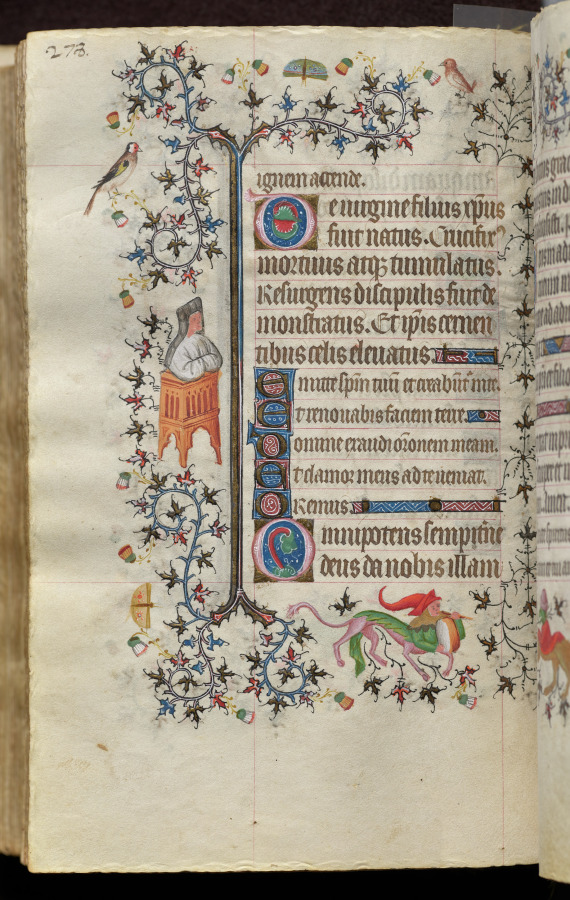 273.
ignem accende.
De uirgine filius xpus
fuit natus. Crucifix9
mortuus atq tumulatus.
Resurgens discipulis fuit de
monstratus. Et ipis cernen
tibus celis eleuatus.
Emitte spm tuu et creabut me.
Et renouabis faciem terre.
Domine exaudi oronem meam.
Et clamor meus ad te ueniat.
Oremus.
Omnipotens sempitne
deus da nobis illam